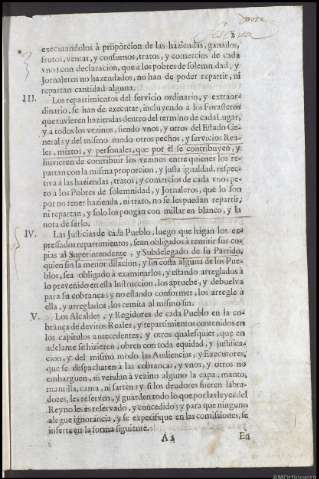 executandolos à proporcion de las haziendas, ganados,
frutos, ventas, y consumos, tratos, y comercios de cada
vno: con declaracion, que a los pobres de solemnidad, y
Jornaleros no hazendados, no han de poder repartir, ni
repartan cantidad alguna.
III. Los repartimientos del servicio ordinario, y extraor-
dinario, se han de executar, incluyendo à los Forasteros
que tuvieren haziendas dentro del termino de cada Lugar,
y a todos los vezinos, siendo vnos, y otros del Estado Ge-
neral: y del mismo modo otros pechos, y servicios Rea-
les, mixtos, y personales, que por él se contribuyen, y
huvieren de contribuir los vezinos entre quienes los re-
partan con la misma proporcion, y justa igualdad, respec-
tiva à las haziendas, tratos, y comercios de cada vno: pe-
ro à los Pobres de solemnidad, y Jornaleros, que lo son
por no tener hazienda, ni trato, no se les puedan repartir,
ni repartan, y solo los pongan con millar en blanco, y la
nota de serlo.
IV. Las Justicias de cada Pueblo, luego que hagan los ex-
pressados repartimientos, sean obligados à remitir sus co-
pias al Superintendente, y Subdelegado de su Partido,
quien sin la menor dilacion, y sin costa alguna de los Pue-
blos, sea obligado à examinarlos, y estando arreglados à
lo prevenido en esta Instruccion, los apruebe, y debuelva
para su cobranza; y no estando conformes, los arregle à
ella, y arreglados, los remita al mismo fin.
V. Los Alcaldes, y Regidores de cada Pueblo en la co-
branza de devitos Reales, y repartimientos contenidos en
los capitulos antecedentes, y otros qualesquier, que en
adelante se hizieren, obren con toda equidad, y justifica-
cion, y del mismo modo las Audiencias, y Executores,
que se despacharen à las cobranzas, y vnos, y otros no
embarguen, ni vendan à vezino alguno la capa, manto,
mantilla, cama, ni sarten: y si los deudores fueren labra-
dores, les reserven, y guarden todo lo que por las leyes del
Reyno les es reservado, y concedido: y para que ninguno
alegue ignorancia, y se exprese en las comissiones, se
inserta en la forma siguiente.
A 2 En